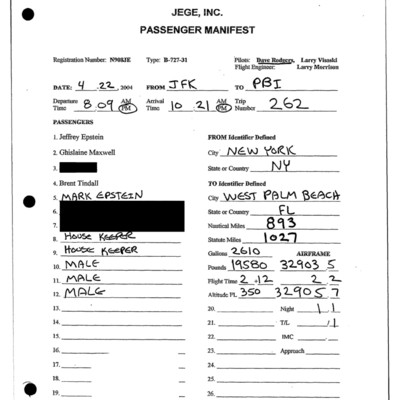 JEGE, INC.
PASSENGER MANIFEST
Registration Number: N908JE Type: B-727-31 Pilots: Dave Rodgers, Larry Visoski
Flight Engineer: Larry Morrison
DATE: 4 . 22 , 2004 FROM JFK TO PBI
Departure Time 8 09 AM PM Arrival Time 10 . 21 AM PM Trip Number 262
PASSENGERS
1. Jeffrey Epstein FROM Identifier Defined
2. Ghislaine Maxwell City NEW YORK
3. State or Country NY
4. Brent Tindall TO Identifier Defined
5. MARK EPSTEIN City WEST PALM BEACH
6. State or Country FL
7. Nautical Miles 893
8. HOUSE KEEPER Statute Miles 1027
9. HOUSE KEEPER Gallons 2610 AIRFRAME
10. MALE Pounds 19580 32903 5
11. MALE Flight Time 2 . 12 2 2
12. MALE Altitude FL 350 32905 7
13. 20. Night 1 1
14. 21. T/L 1
15. 22. IMC
16. 23. Approach
17. 24.
18. 25.
19. 26.